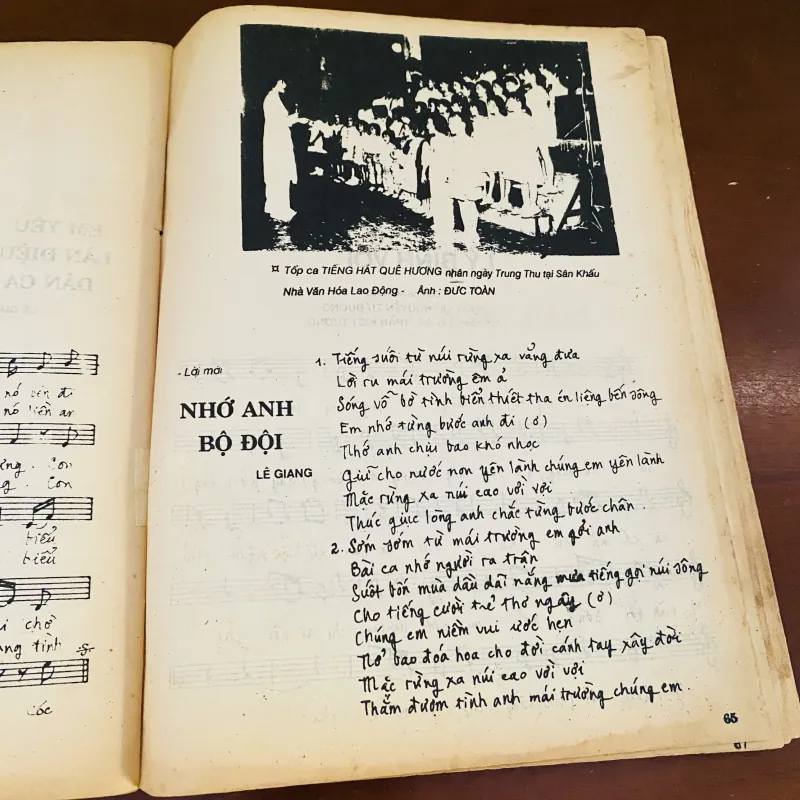 nó bên đi
nó liền ar
ưng . Con
g . Con
tiểu
tiểu
i chờ
ang tình
cóc
¤ Tốp ca TIẾNG HÁT QUÊ HƯƠNG nhân ngày Trung Thu tại Sân Khấu
Nhà Văn Hóa Lao Động - Ảnh : ĐỨC TOÀN
- Lời mới
NHỚ ANH
BỘ ĐỘI
LÊ GIANG
1. Tiếng suối từ núi rừng xa vẳng đưa
Lời ru mái trường êm ả
Sóng vỗ bờ tình biển thiết tha én liệng bến sông
Em nhớ từng bước anh đi (ơ)
Nhớ anh chịu bao khó nhọc
Giữ cho nước non yên lành chúng em yên lành
Mặc rừng xa núi cao vời vợi
Thúc giục lòng anh chắc từng bước chân .
2. Sớm sớm từ mái trường em gởi anh
Bài ca nhớ người ra trận
Suốt bốn mùa dầu dãi nắng mưa tiếng gọi núi sông
Cho tiếng cười trẻ thơ ngây (ơ)
Chúng em niềm vui ước hẹn
Nở bao đóa hoa cho đời cánh tay xây đời
Mặc rừng xa núi cao vời vợi
Thắm đượm tình anh mái trường chúng em .
65
67